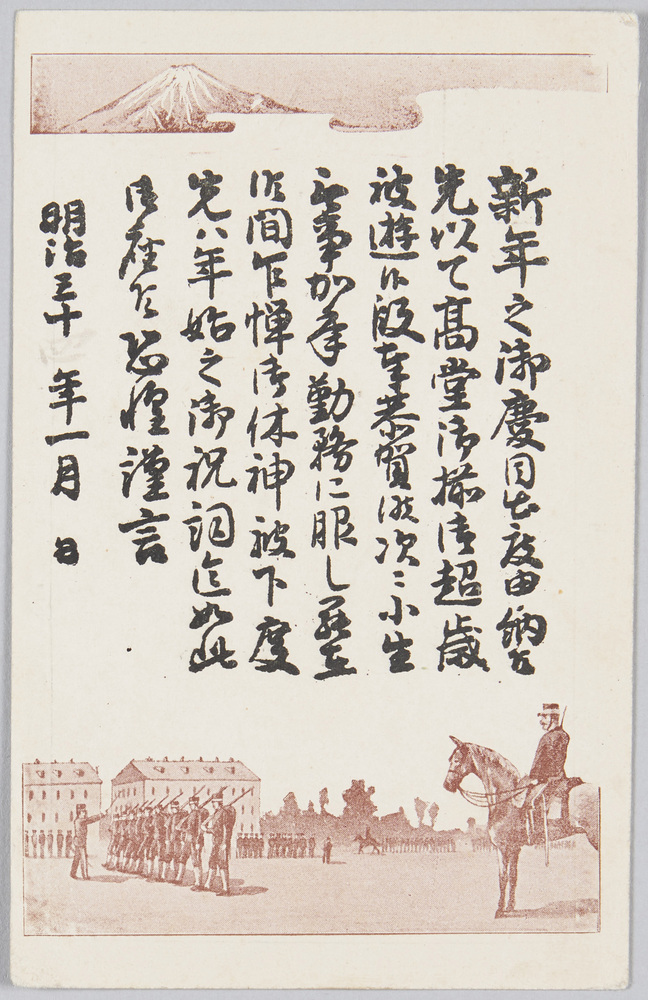 新年之御慶目出度申納候
先以て高堂御揃御超歳
被遊候段奉恭賀候次ニ小生
無事加年勤務に服し罷在
候間乍憚御休神被下度
先ハ年始之御祝詞迄如此
御座候恐惶謹言
明治三十 年一月 日